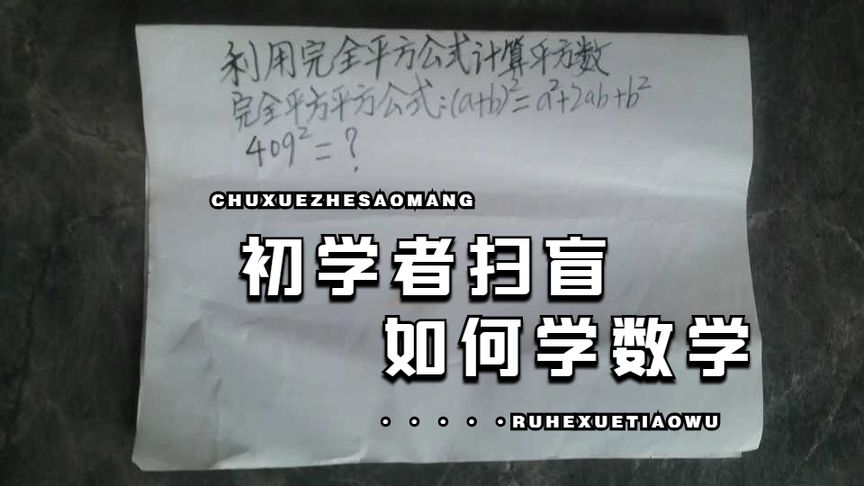 利用完全平方公式计算平方数
完全平方平方公式:(a+b)²=a²+2ab+b²
409²=?
CHUXUEZHESAOMANG
初学者扫盲
如何学数学
·····RUHEXUETIAOWU